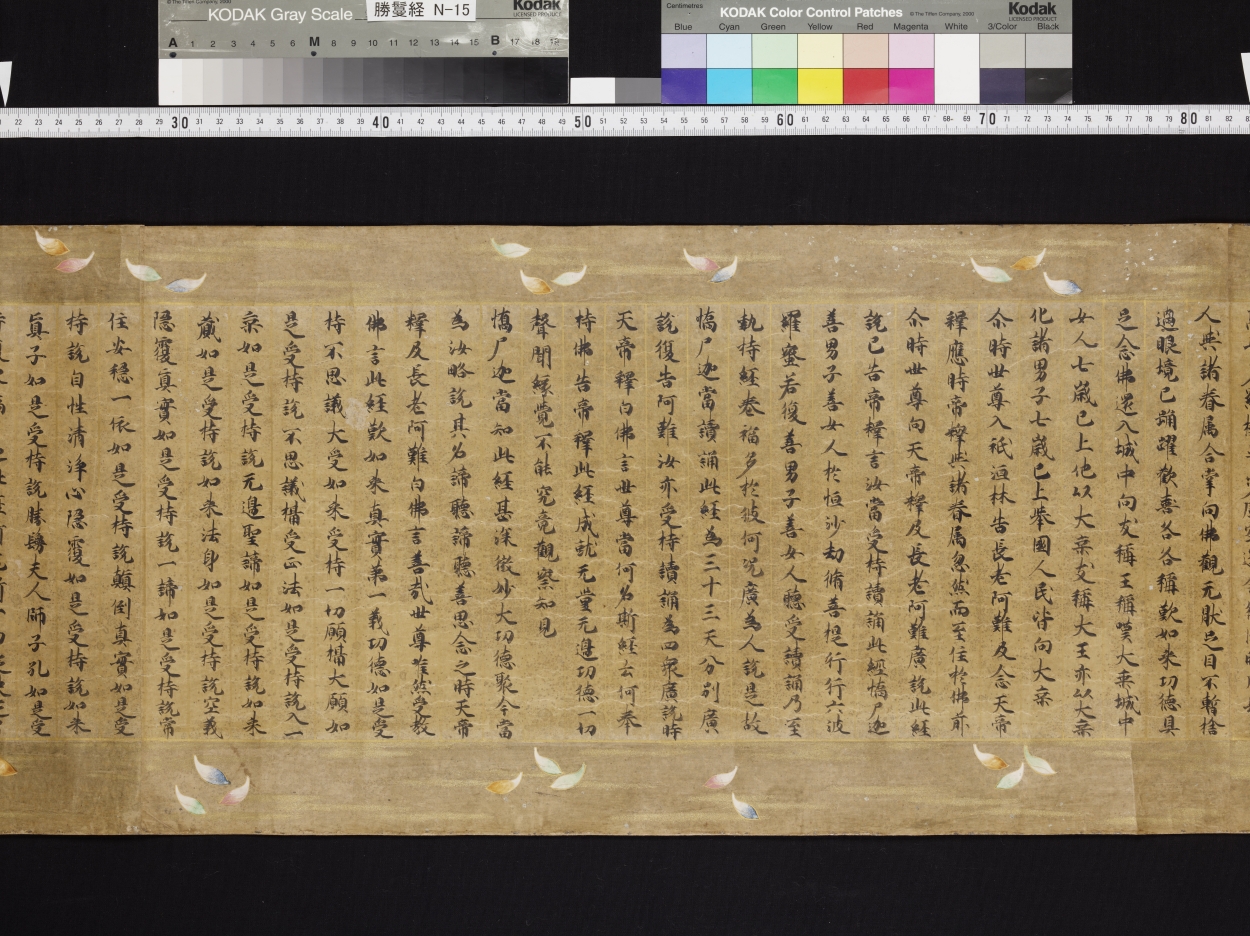 KODAK Gray Scale
勝鬘経 N-15
Kodak
LICENSED PRODUCT
© The Tiffen Company, 2000
A 1 2 3 4 5 6 M 8 9 10 11 12 13 14 15 B 17 18 19
Centimetres
KODAK Color Control Patches
© The Tiffen Company, 2000
Kodak
LICENSED PRODUCT
Blue Cyan Green Yellow Red Magenta White 3/Color Black
22 23 24 25 26 27 28 29 30 31 32 33 34 35 36 37 38 39 40 41 42 43 44 45 46 47 48 49 50 51 52 53 54 55 56 57 58 59 60 61 62 63 64 65 66 67 68 69 70 71 72 73 74 75 76 77 78 79 80 81 82
人與諸眷属合掌向佛觀无猒足目不暫捨
過眼境已踊躍歡喜各各稱歎如来功德具
足念佛還入城中向友稱王稱嘆大乗城中
女人七歳已上化以大乗友稱大王亦以大乗
化諸男子七歳已上舉國人民皆向大乗
尒時世尊入祇洹林告長老阿難及念天帝
釋應時帝釋與諸眷属忽然而至住於佛前
尒時世尊向天帝釋及長老阿難廣說此經
說已告帝釋言汝當受持讀誦此經憍尸迦
善男子善女人於恒沙劫脩菩提行行六波
羅蜜若復善男子善女人聽受讀誦乃至
執持經卷福多於彼何況廣為人說是故
憍尸迦當讀誦此經為三十三天分別廣
說復告阿難汝亦受持讀誦為四衆廣說時
天帝釋白佛言世尊當何名斯經云何奉
持佛告帝釋此經成就无量无邊功德一切
聲聞縁覺不能究竟觀察知見
憍尸迦當知此經甚深微妙大功德聚今當
為汝略說其名諦聽諦聽善思念之時天帝
釋及長老阿難白佛言善哉世尊唯然受教
佛言此經歎如来真實第一義功德如是受
持不思議大受如来受持一切願攝大願如
是受持說不思議攝受正法如是受持說入一
乗如是受持說无邊聖諦如是受持說如来
藏如是受持說如来法身如是受持說空義
隱覆真實如是受持說一諦如是受持說常
住安穩一依如是受持說顛倒真實如是受
持說自性清淨心隱覆如是受持說如来
真子如是受持說勝鬘夫人師子孔如是受